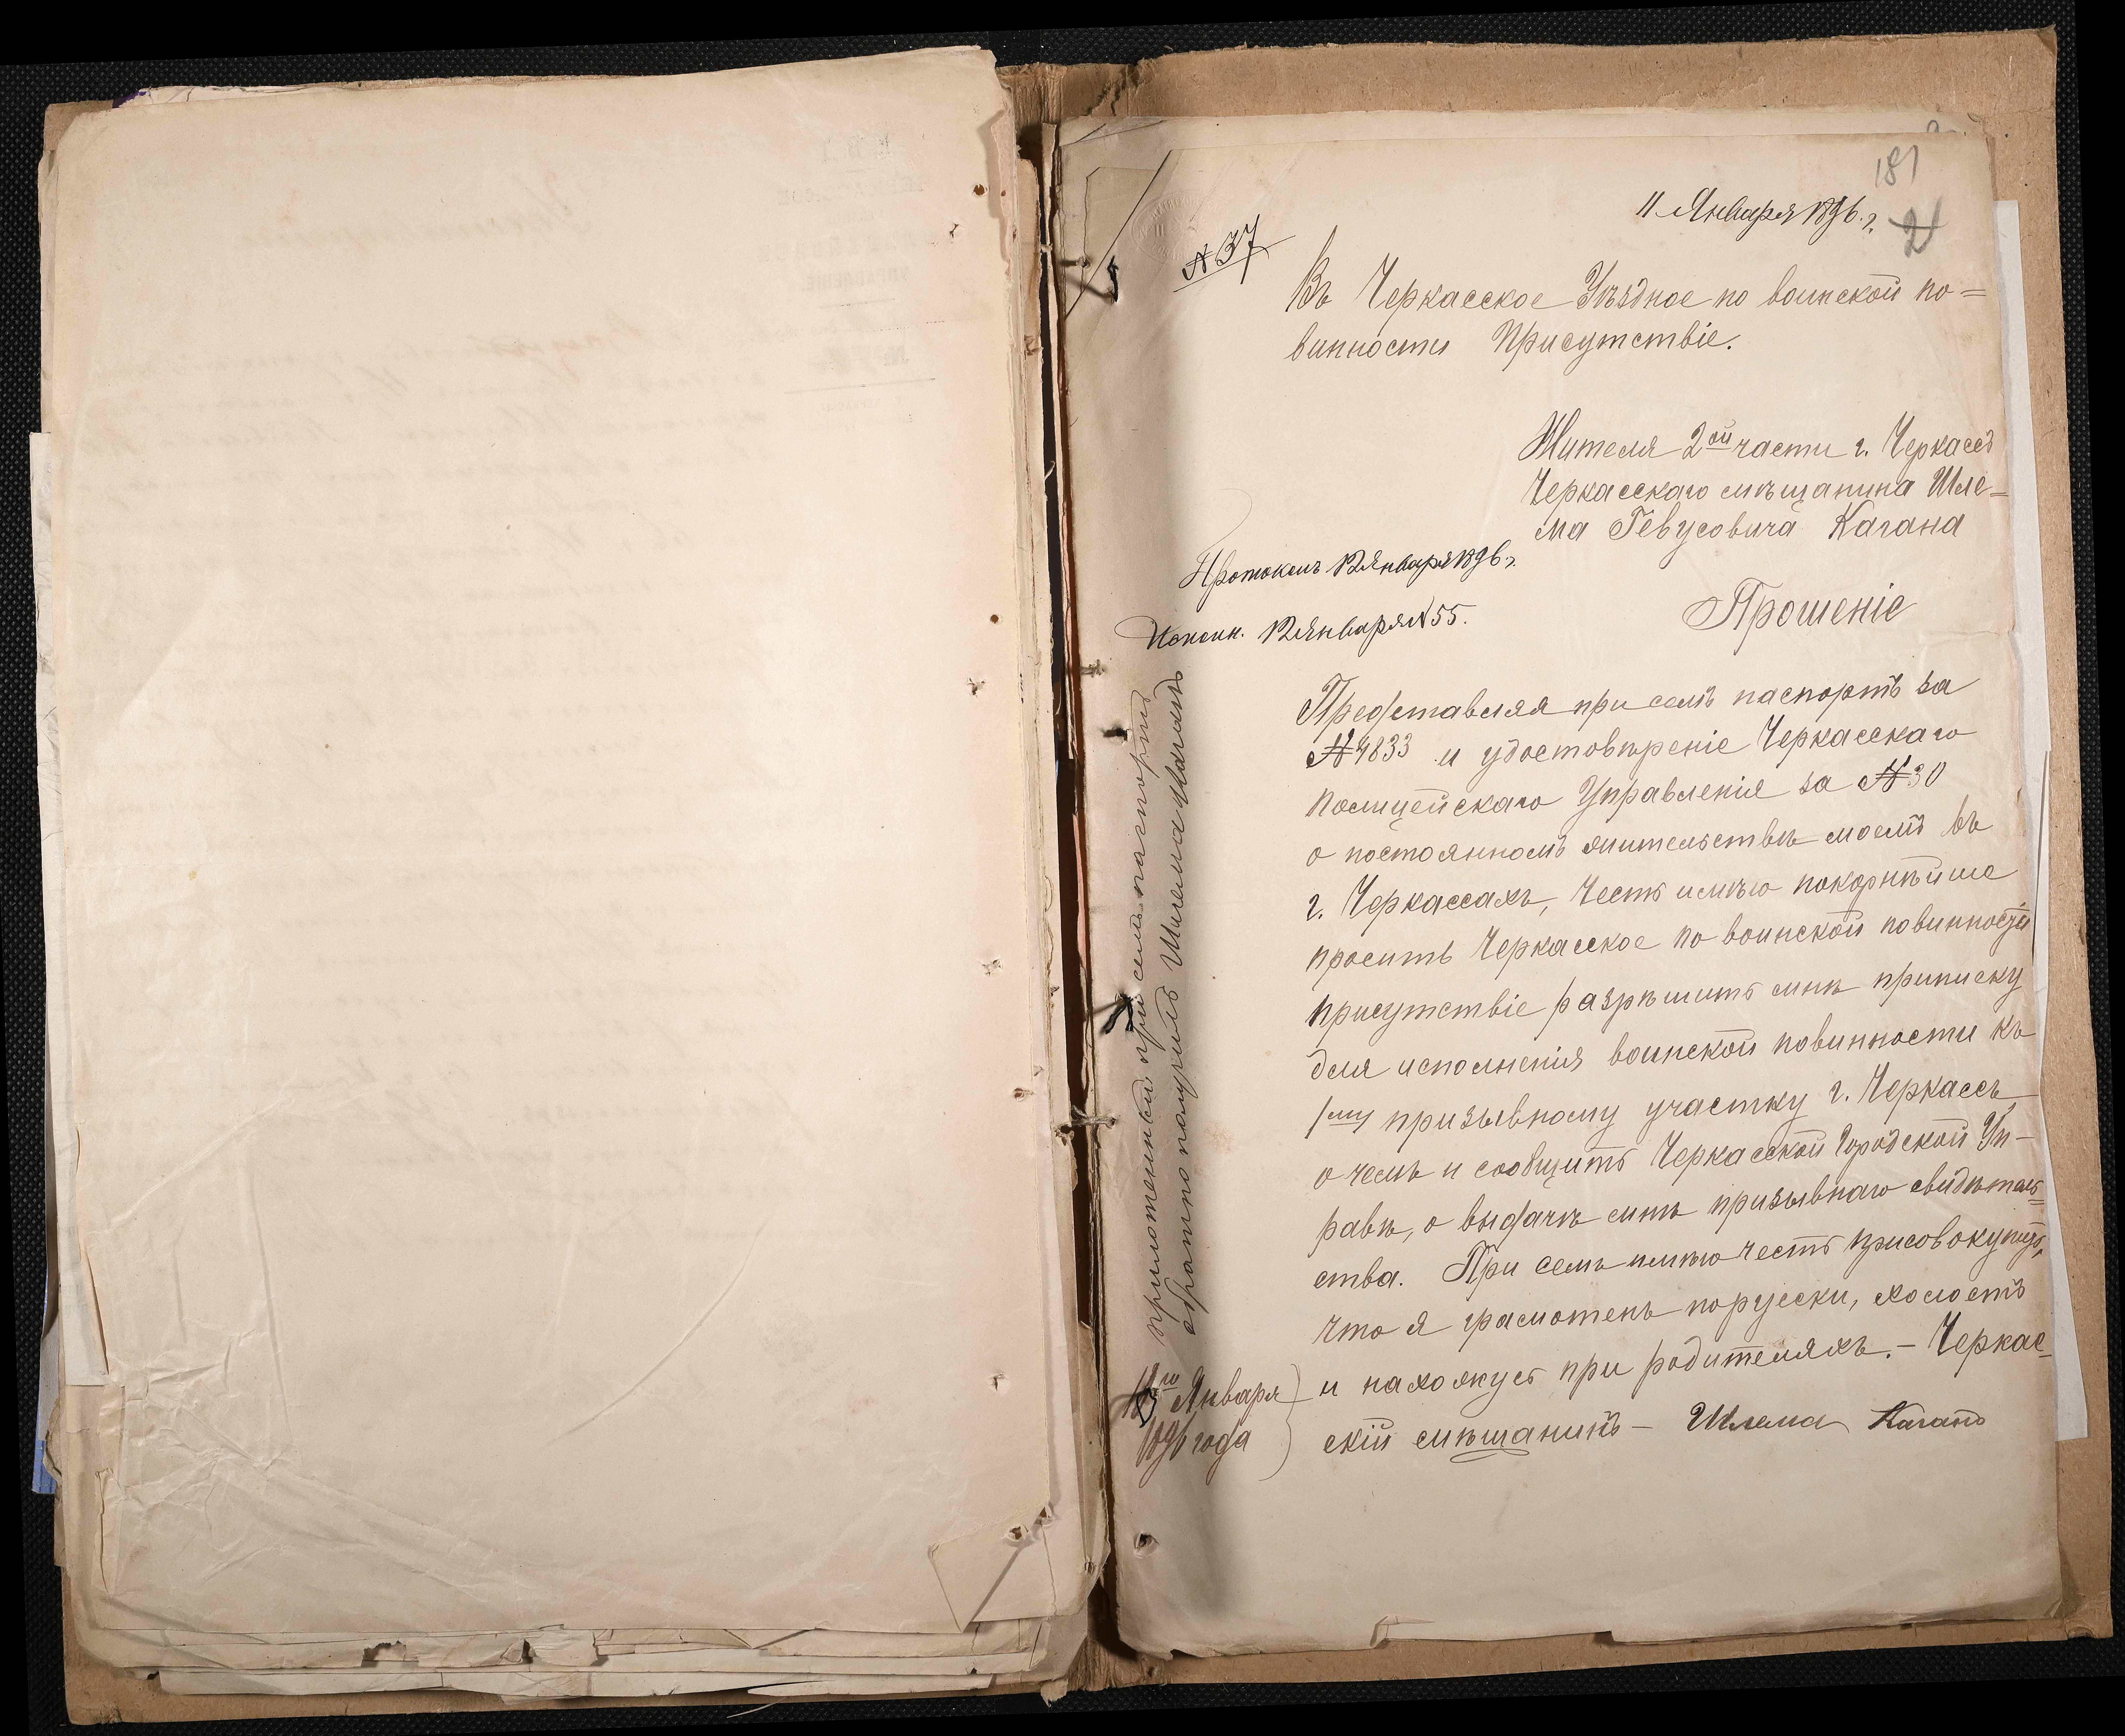 181
11 Января 1896 г.
21
№ 37
Въ Черкасское Уѣздное по воинской по=
винности Присутствіе.
Жителя 2ой части г. Черкассъ
Черкасскаго мѣщанина Шле=
ма Гевусовича Кагана
Протоколъ 12 Января 1896 г.
Исполн. 12 Января № 55.
Прошеніе
Представляя при семъ паспортъ за
№ 4833 и удостовѣреніе Черкасскаго
Полицейскаго Управленія за № 30
о постоянномъ жительствѣ моемъ въ
г. Черкассахъ, честь имѣю покорнѣйше
просить Черкасское по воинской повинности
присутствіе разрѣшить мнѣ приписку
для исполненія воинской повинности къ
1му призывному участку г. Черкассъ,
о чемъ и сообщить Черкасской Городской Уп-
равѣ, о выдачѣ мнѣ призывнаго свидѣтель=
ства. При семъ имѣю честь присовокупить,
что я грамотенъ порусски, холостъ
и нахожусь при родителяхъ. – Черкас-
скій мѣщанинъ – Шлема Каганъ
Января
1896 года
приложенный при семъ паспортъ
обратно получилъ Шлема Каганъ